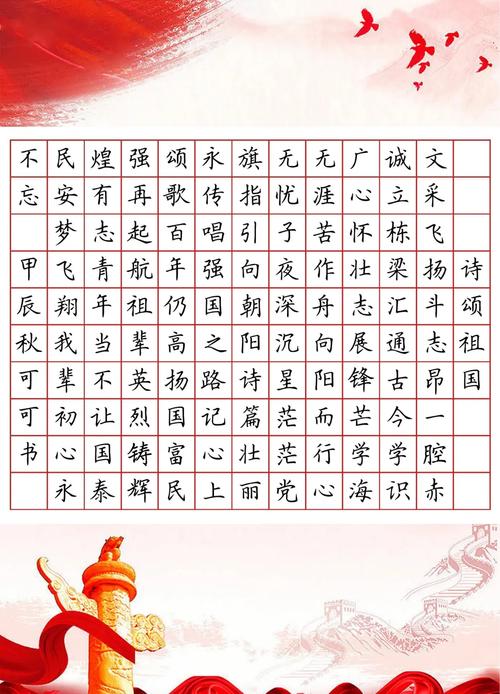 诗颂祖国
文采飞扬斗志昂一腔赤
诚立栋梁汇通古今学识
广心怀壮志展锋芒学海
无涯苦作舟向阳而行心
无忧子夜深沉星茫茫党
旗指引向朝阳诗篇壮丽
永传唱强国之路记心上
颂歌百年仍高扬国富民
强再起航祖辈英烈铸辉
煌有志青年当不让国泰
民安梦飞翔我辈初心永
不忘 甲辰秋可可书